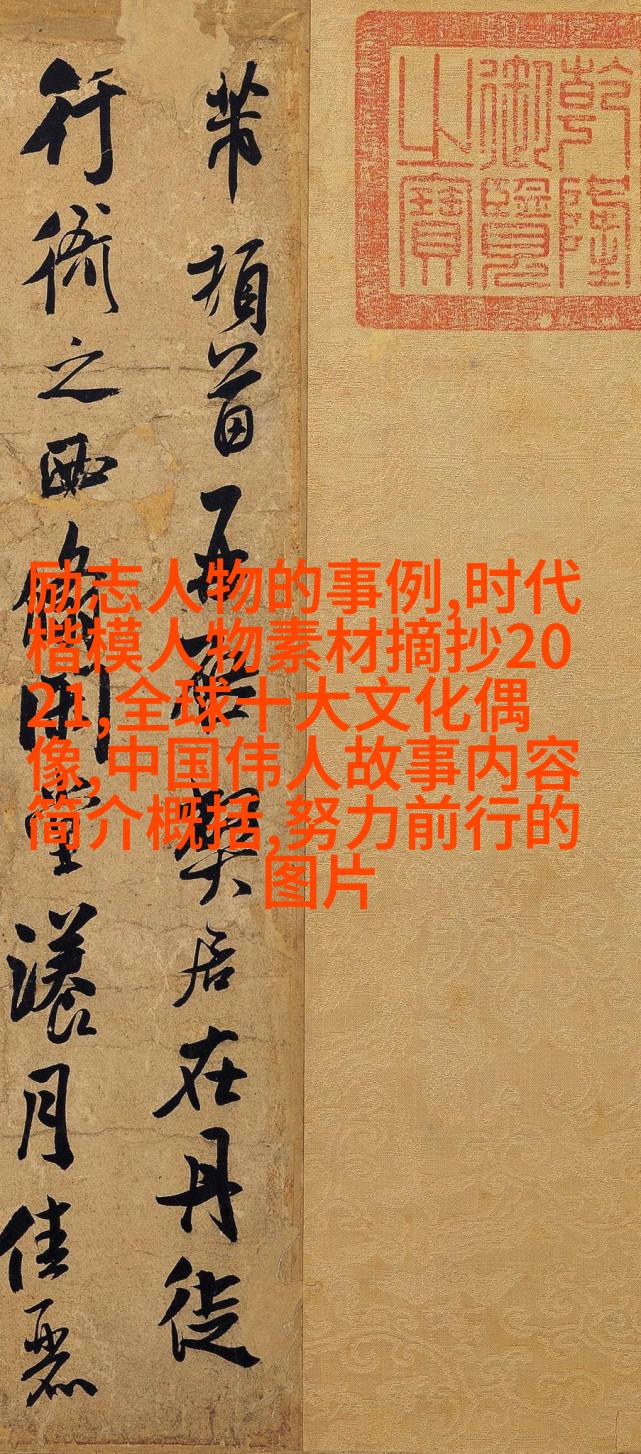 乾隆
御覽
之寶
芾頓首再啓弊居在丹徒
行衙之西翛閑堂漾月佳麗
励志人物的事例,时代
楷模人物素材摘抄20
21,全球十大文化偶
像,中国伟人故事内容
简介概括,努力前行的
图片